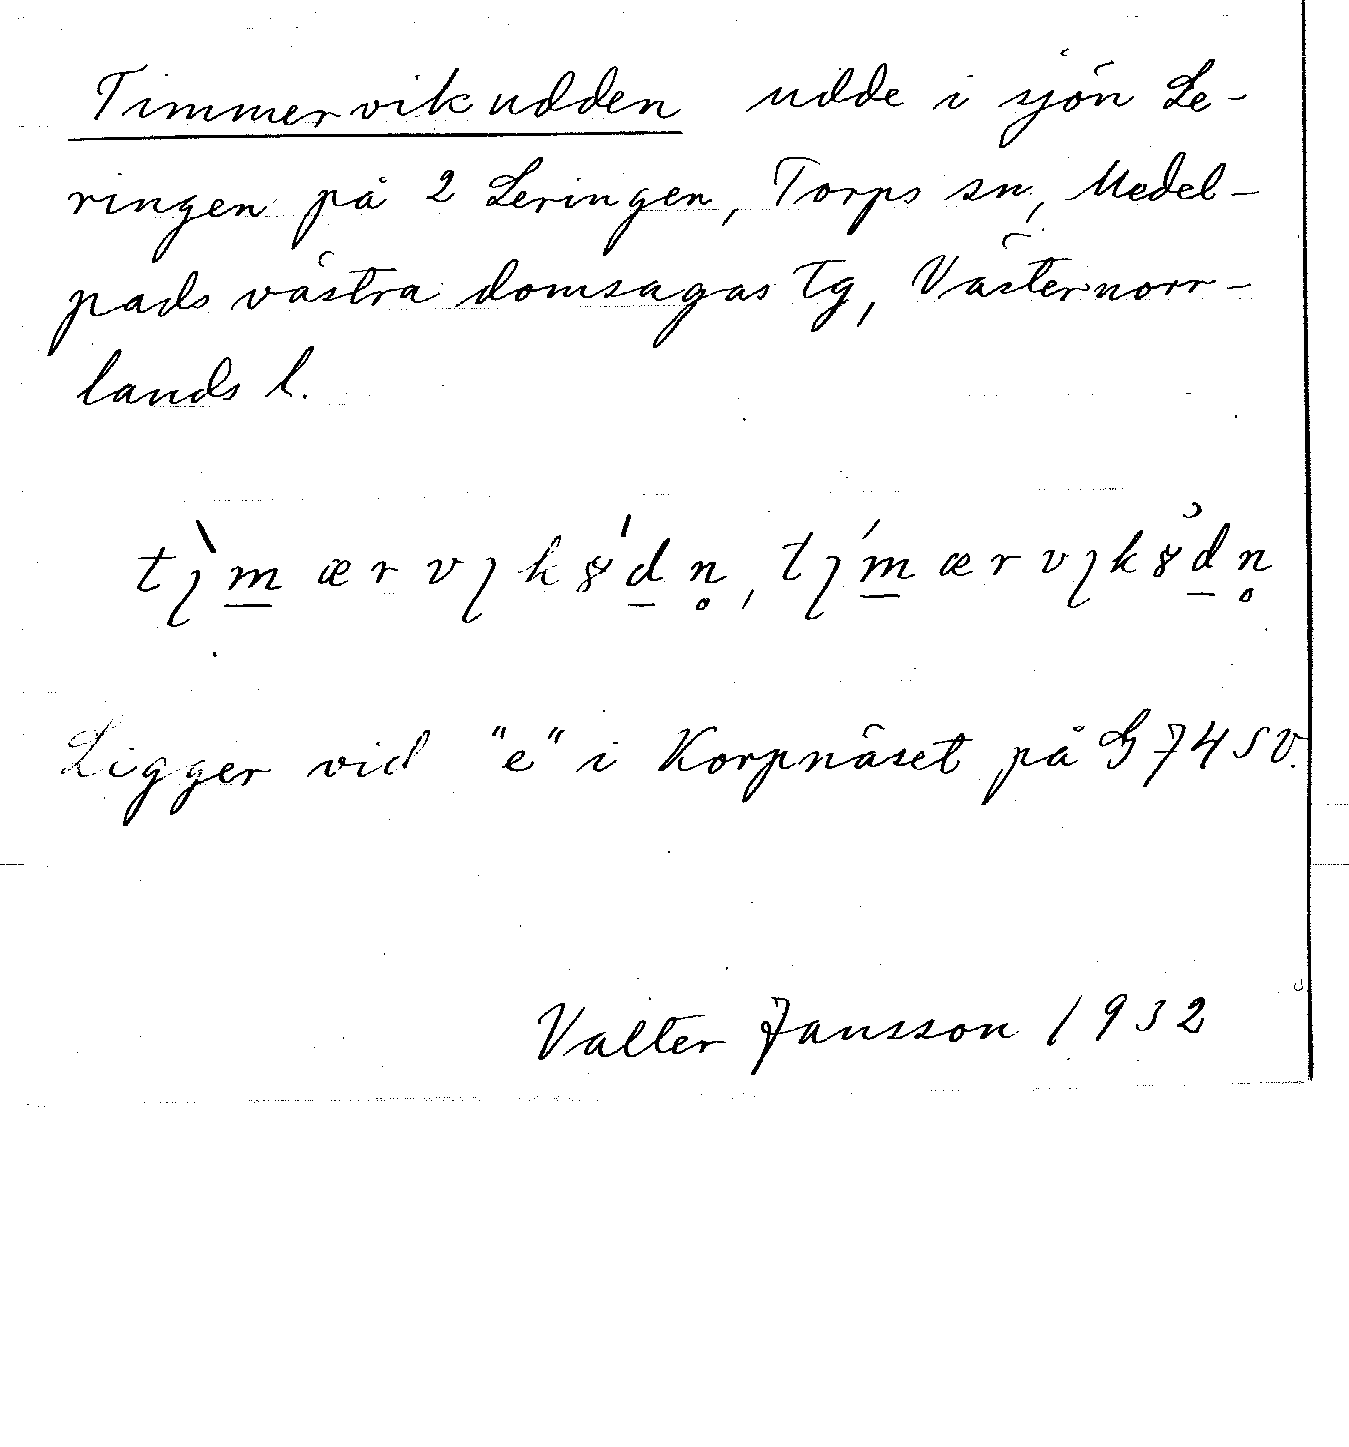 Timmervikudden udde i sjön Le-
ringen på 2 Leringen, Torps sn, Medel-
pads västra domsagas tg, Västernorr-
lands l.
Ligger vid "e" i Korpnäset på G 74 SV.
Valter Jansson 1932